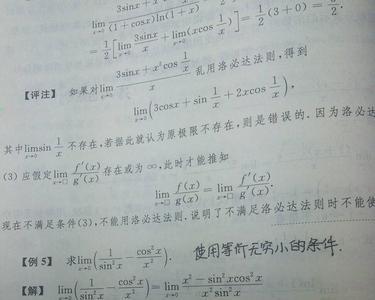 lim_{x→0} \frac{3sinx + x^2 cos\frac{1}{x}}{(1+cosx)ln(1+x)} = \frac{1}{2} lim_{x→0}
= \frac{1}{2}[lim_{x→0} \frac{3sinx}{x} + lim_{x→0}(xcos\frac{1}{x})] = \frac{1}{2}(3+0) = \frac{3}{2}.
【评注】 如果对 lim_{x→0} \frac{3sinx + x^2 cos\frac{1}{x}}{x} 乱用洛必达法则,得到
lim_{x→0}(3cosx + sin\frac{1}{x} + 2xcos\frac{1}{x}),
其中 lim_{x→0} sin\frac{1}{x} 不存在,若据此就认为原极限不存在,则是错误的.因为洛必达
(3) 应假定 lim_{x→□} \frac{f'(x)}{g'(x)} 存在或为 ∞,此时才能推知
lim_{x→□} \frac{f(x)}{g(x)} = lim_{x→□} \frac{f'(x)}{g'(x)}.
现在不满足条件(3),不能用洛必达法则.说明了不满足洛必达法则时不能使
【例 5】 求 lim_{x→0}(\frac{1}{sin^2 x} - \frac{cos^2 x}{x^2}). 使用等价无穷小的条件.
【解】 lim_{x→0}(\frac{1}{sin^2 x} - \frac{cos^2 x}{x^2}) = lim_{x→0} \frac{x^2 - sin^2 xcos^2 x}{x^2 sin^2 x}